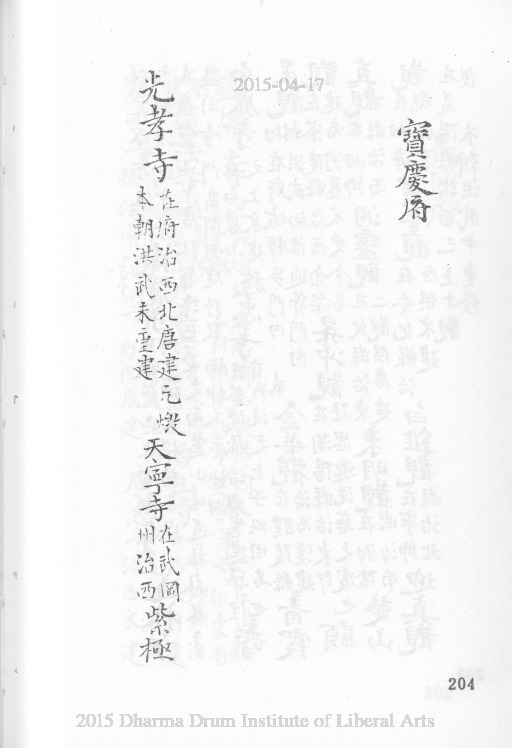 2015-04-17
寶慶府
光孝寺在府治西北唐建元燬
本朝洪武末重建
天寧寺在武岡
州治西
紫極
204
2015 Dharma Drum Institute of Liberal Arts